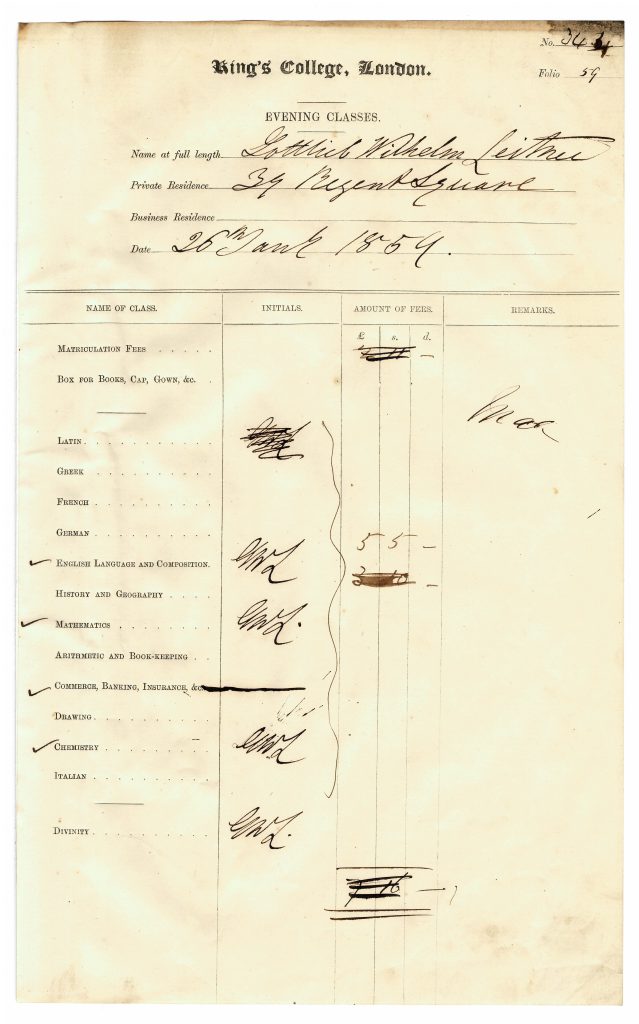 No.
King's College, London.
Folio 59
EVENING CLASSES.
Name at full length Gottlieb Wilhelm Leitner
Private Residence 39 Regent Square
Business Residence
Date 26th Jany 1859.
NAME OF CLASS. INITIALS. AMOUNT OF FEES. REMARKS.
£ s. d.
MATRICULATION FEES . . . . . –
BOX FOR BOOKS, CAP, GOWN, &c. .
LATIN . . . . . . . . . .
GREEK . . . . . . . . . .
FRENCH . . . . . . . . . .
GERMAN . . . . . . . . . . 5 5 –
ENGLISH LANGUAGE AND COMPOSITION. GWL
HISTORY AND GEOGRAPHY . . . . –
MATHEMATICS . . . . . . . . GWL.
ARITHMETIC AND BOOK-KEEPING . .
COMMERCE, BANKING, INSURANCE, &c.
DRAWING . . . . . . . . . .
CHEMISTRY . . . . . . . . . GWL
ITALIAN . . . . . . . . . .
DIVINITY . . . . . . . . . . GWL.